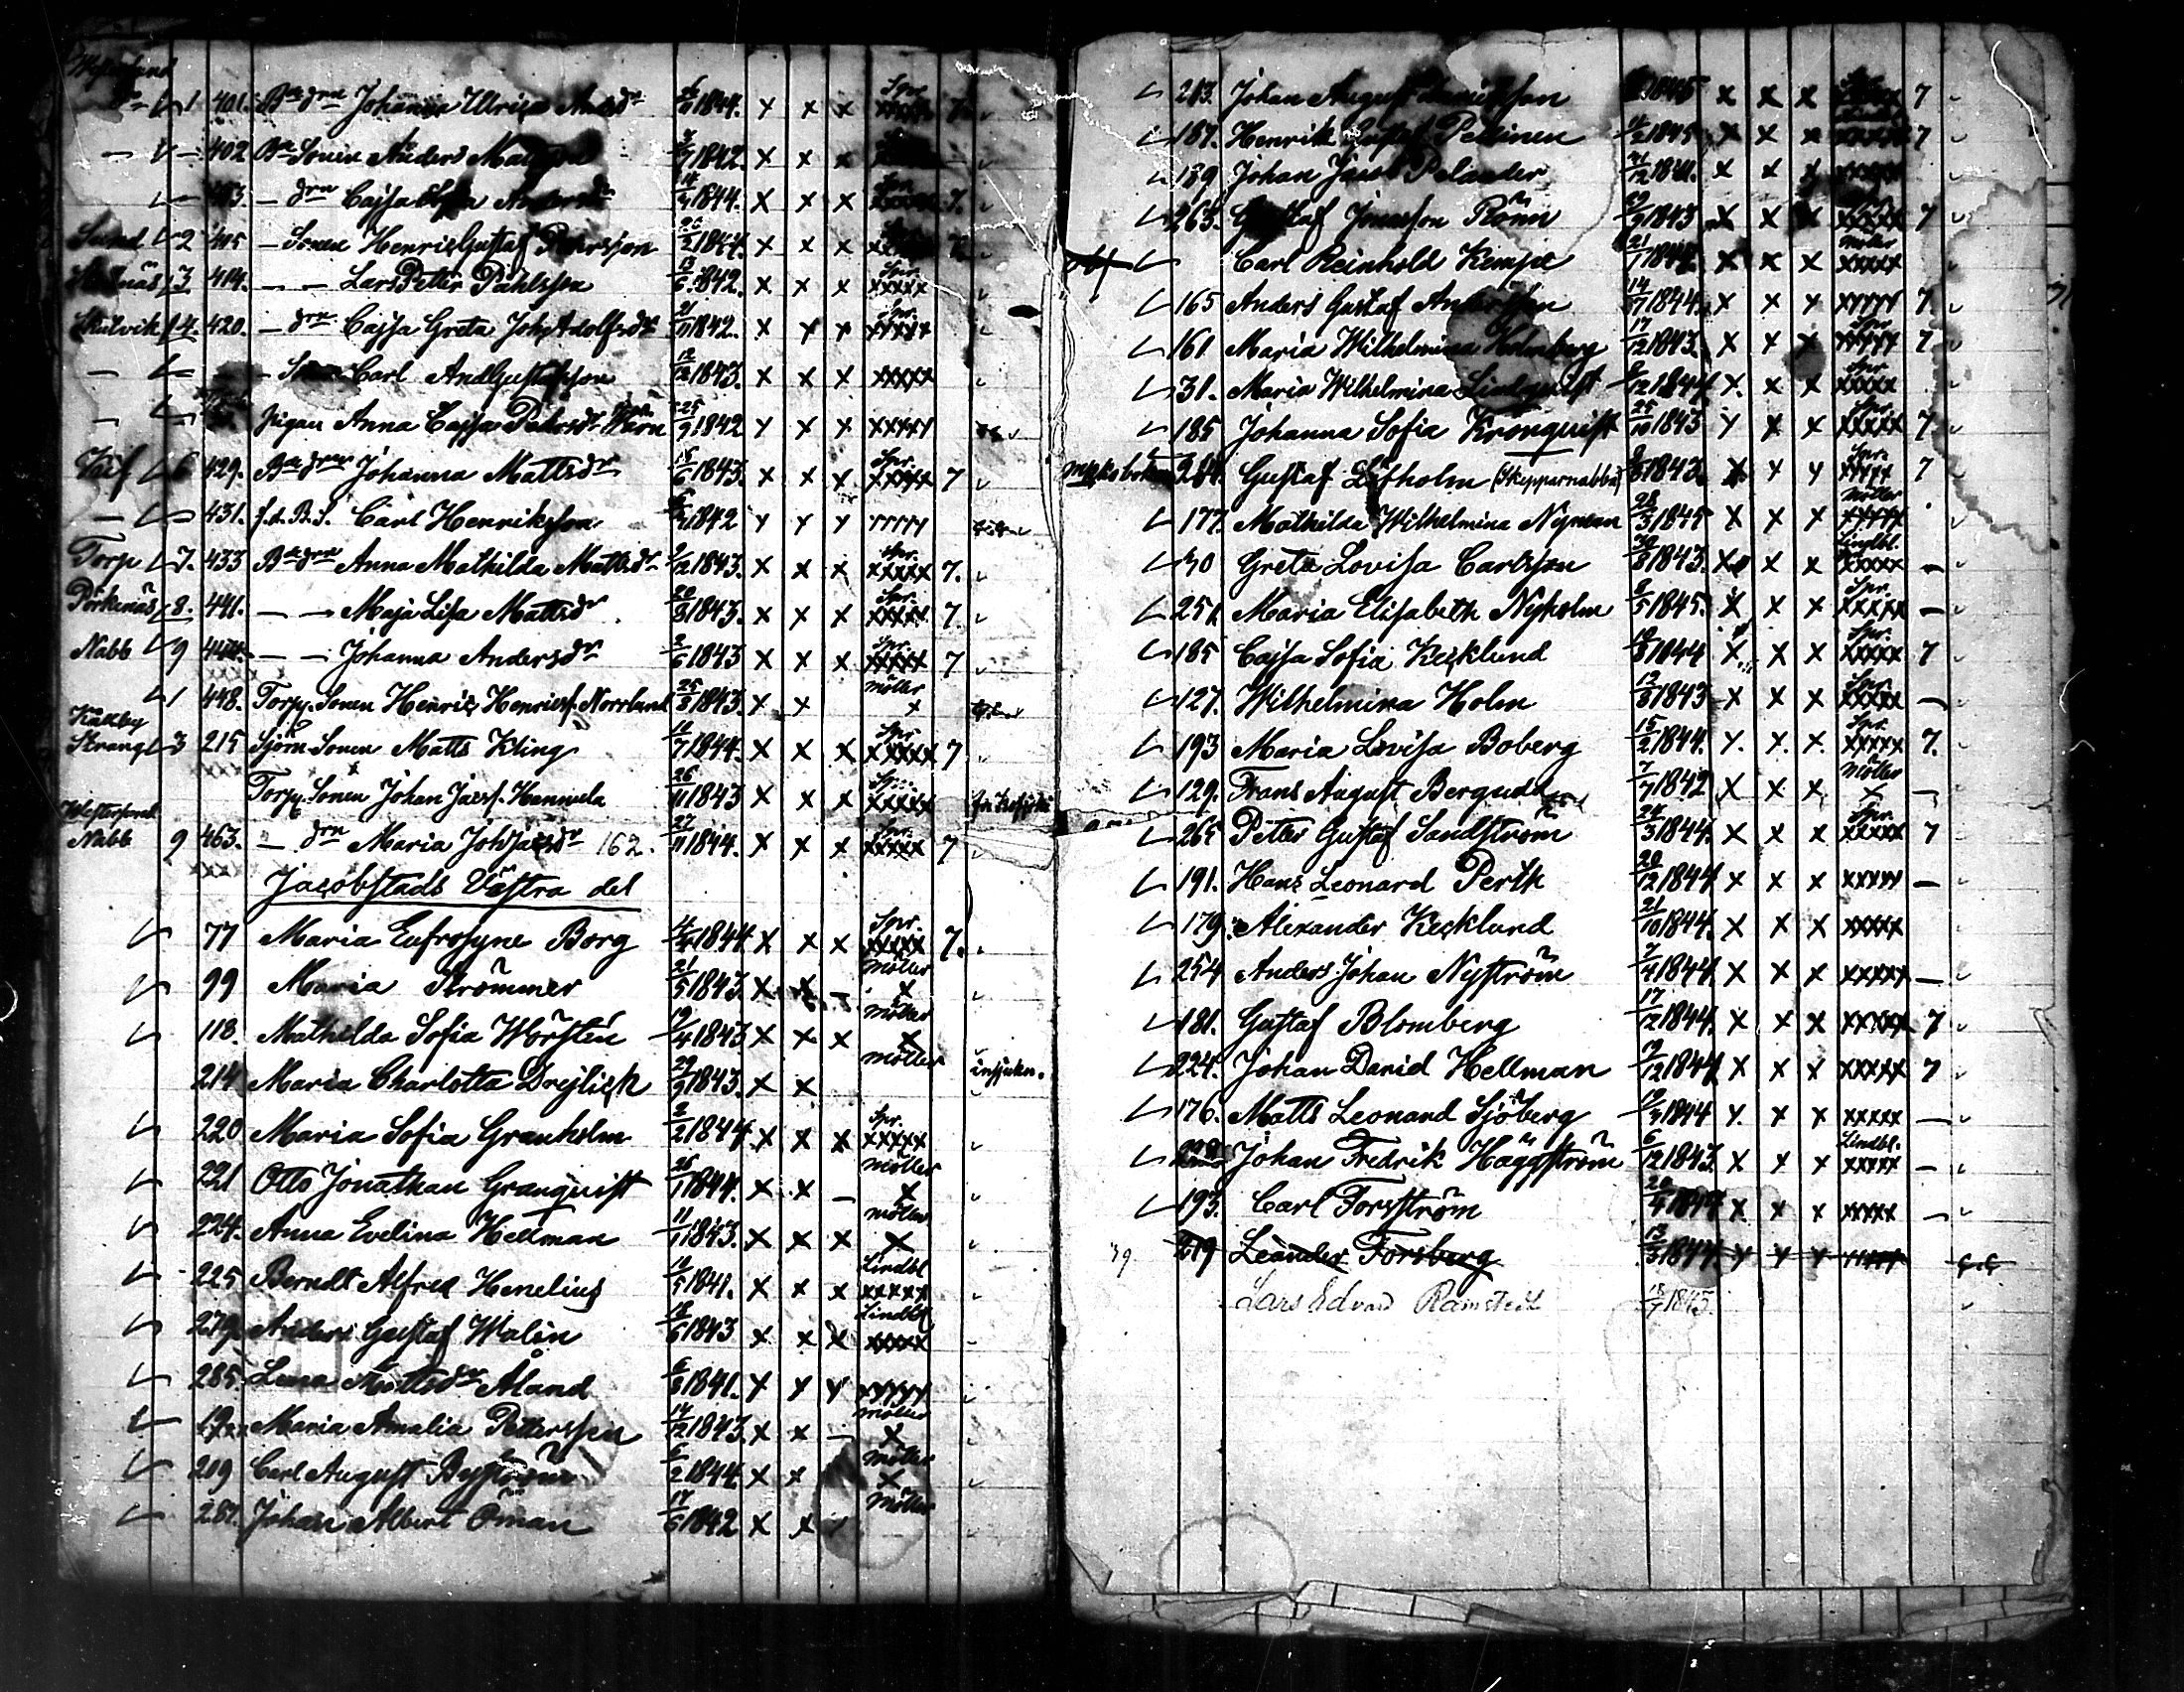 Westerlund
1 401. B:dn Johanna Ulrica Andsdr 1844. x x x Spr. xxxxx 7.
— — 402 B. Sonen Anders Mattsson 1842. x x x
403. — drn Cajsa Andersdr 14/4 1844. x x x 7.
Sund 2 405 — Sonen Henric Gustaf Pehrsson 1844. x x x
3 414. — — Lars Petter Påhlsson 13/6 1842. x x x Spr. xxxxx
Skutvik 4. 420. — drn Cajsa Greta Joh: Adolfsdr 21/11 1842. x x x Spr. xxxxx
— — — Sonen Carl And Gustafsson 12/12 1843. x x x xxxxx
— Pigan Anna Cajsa Pehrsdr 25/9 1842 x x x xxxxx
6 429. B:drn Johanna Mattsdr 15/6 1843. x x x Spr. xxxxx 7
— — 431. f.d. B.S. Carl Henriksson 1842 x x x xxxxx
Torp 7. 433 B:drn Anna Mathilda Mattsdr 2/2 1843. x x x Spr. xxxxx 7.
Pörkenäs 8. 441. — — Maja Lisa Mattsdr 20/8 1843. x x x Spr. xxxxx 7.
Nabb 9 444. — — Johanna Andersdr 2/6 1843 x x x Spr. xxxxx 7
1 448. Torp. Sonen Henric Henricss. Norrlund 25/8 1843. x x Möller x
Kållby
Strang 3 215 Sjöm Sonen Matts Kling 16/7 1844. x x x Spr. xxxxx 7
Torp. Sonen Johan Jacss. Hannula 26/11 1843 x x x Spr. xxxxx
Westersund
Nabb 9 463. — drn Maria Joh Jacsdr 162. 27/11 1844. x x x Spr. xxxxx 7
Jacobstads Västra del
77 Maria Eufrosyne Borg 1844 x x x Spr. xxxxx 7.
99 Maria Strömmer 21/5 1843 x x — Möller x
118. Mathilda Sofia Worstén 19/4 1843 x x x Möller x
214 Maria Charlotta Drejlick 29/9 1843. x x Möller insjukn.
220 Maria Sofia Granholm 2/2 1844 x x x Spr. xxxxx
221 Otto Jonathan Granquist 26/1 1844. x x — Möller x
224. Anna Evelina Hellman 11/11 1843. x x x Möller x
225 Berndt Alfred Henelius 12/5 1841. x x x Lindbl xxxxx
279. Anders Gustaf Walin 18/6 1843 x x x Lindbl xxxxx
285. Lena Mattsdr Åland 6/8 1841. x x x xxxxx
19 Maria Amalia Pettersson 14/12 1843. x x — Möller x
219 Carl August Byström 6/2 1844. x x Möller x
287. Johan Albert Öman 17/6 1842 x x Möller
213. Johan August 1845 x x x 7
187. Henrik Gustaf Pelkinen 1845 x x x xxxxx 7
139 Johan Jacob Pelander 21/12 1841. x x x xxxxx
263. Gustaf Jonasson Rönn 29/9 1843 x x x xxxxx 7
Carl Reinhold Kempe 21/1 1844. x x x Möller xxxxx
165 Anders Gustaf Andersson 14/7 1844. x x x xxxxx 7.
161 Maria Wilhelmina Holmberg 17/12 1843. x x x Spr. xxxxx 7
31. Maria Wilhelmina Lindquist 8/12 1844 x. x x Spr. xxxxx
185 Johanna Sofia Kronquist 25/10 1843 x x x Spr. xxxxx 7
Gustaf Löfholm (Skepparnabba) 1843. x x x Spr. xxxxx 7
177. Mathilda Wilhelmina Nyman 28/3 1845 x x x Möller xxxxx
30 Greta Lovisa Carlsson 30/8 1843. x x x Lindbl. xxxxx —
251 Maria Elisabeth Nyholm 8/5 1845. x x x Spr. xxxxx —
185 Cajsa Sofia Kecklund 10/8 1844 x x x Spr. xxxxx 7
127. Wilhelmina Holm 12/8 1843 x x x Spr. xxxxx —
193 Maria Lovisa Boberg 15/2 1844. x. x. x. Spr. xxxxx 7.
129. Frans August Bergudd 7/7 1842 x x x Möller x —
265 Petter Gustaf Sandström 24/3 1844. x x x Spr. xxxxx 7
191. Hans Leonard Perth 20/12 1844 x x x xxxxx —
179. Alexander Kecklund 21/10 1844. x x x xxxxx
254 Anders Johan Nyström 7/4 1844. x x x xxxxx —
181. Gustaf Blomberg 17/12 1844. x x x xxxxx 7
224. Johan David Hellman 19/12 1844 x x x xxxxx 7
176. Matts Leonard Sjöberg 19/3 1844 x. x x xxxxx —
Johan Fredrik Häggström 6/12 1843 x x x Lindbl. xxxxx —
193. Carl Forsström 20/4 1844 x x x xxxxx —
39. 219 Leander Forsberg 13/3 1844. x x x xxxxx
Lars Edvard Ramstedt 18/7 1845.